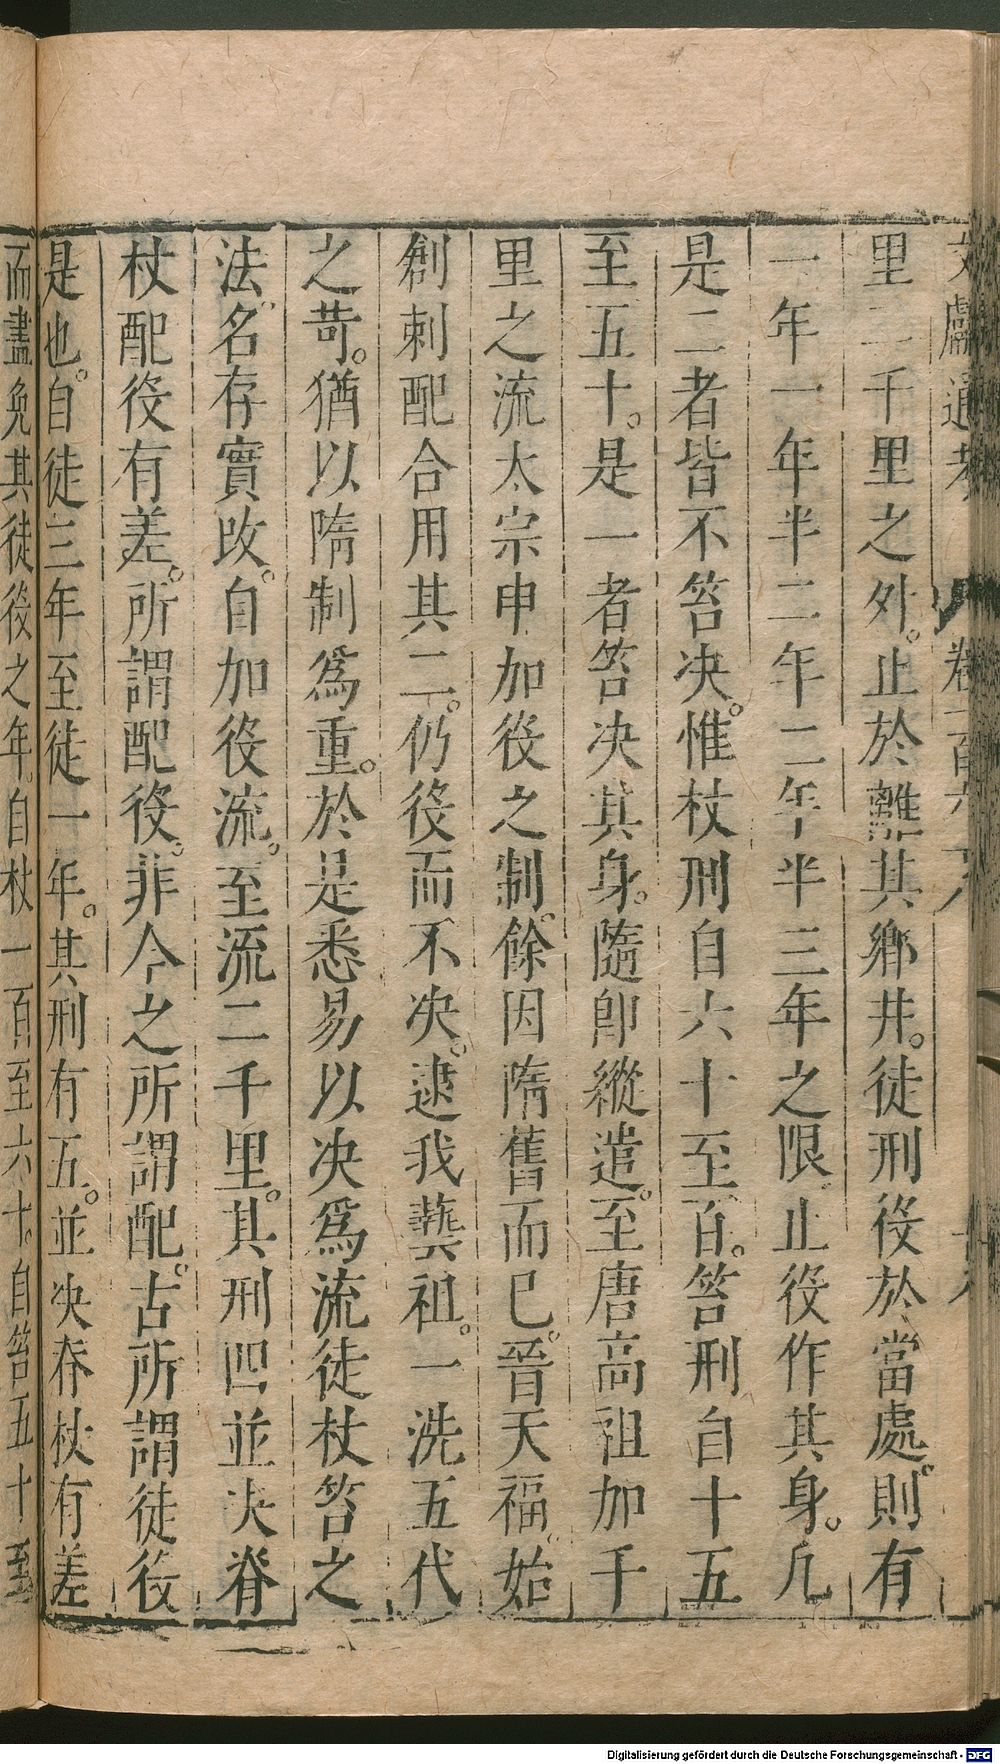 文獻通考 卷一百六十八
里二千里之外。止於離其鄉井。徒刑役於當處。則有
一年一年半二年二年半三年之限。止役作其身。凡
是二者皆不笞决。惟杖刑自六十至百。笞刑自十五
至五十。是一者笞决其身。隨卽縱遣。至唐高祖加千
里之流太宗申加役之制。餘因隋舊而已。晉天福。始
創刺配合用其二。仍役而不决。逮我藝祖。一洗五代
之苛。猶以隋制爲重。於是悉易以决爲流徒杖笞之
法。名存實改。自加役流。至流二千里。其刑四並决脊
杖配役有差。所謂配役。非今之所謂配。古所謂徒役
是也。自徒三年至徒一年。其刑有五。並决脊杖有差
而盡免其徒役之年。自杖一百至六十。自笞五十至
Digitalisierung gefördert durch die Deutsche Forschungsgemeinschaft - DFG